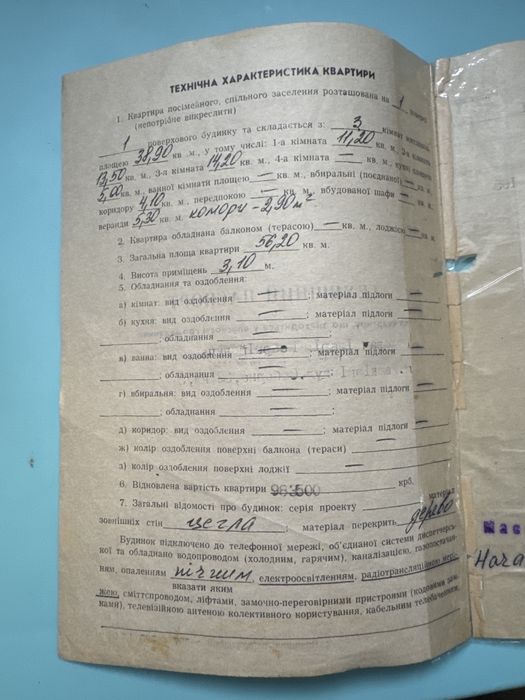 ТЕХНІЧНА ХАРАКТЕРИСТИКА КВАРТИРИ
1. Квартира посімейного, спільного заселення розташована на 1 поверсі
(непотрібне викреслити)
1 поверхового будинку та складається з: 3 кімнат житловою
площею 38,90 кв. м., у тому числі: 1-а кімната 11,20 кв. м, 2-а кімната
13,50 кв. м., 3-я кімната 14,20 кв. м., 4-а кімната — кв. м., кухні площею
5,00 кв. м., ванної кімнати площею — кв. м., вбиральні (поєднаної) — кв. м.
коридору 4,10 кв. м., передпокою — кв. м., вбудованої шафи — кв. м.
веранди 5,30 кв. м. комори - 2,90 м²
2. Квартира обладнана балконом (терасою) — кв. м., лоджією — кв. м.
3. Загальна площа квартири 56,20 кв. м.
4. Висота приміщень 3,10 м.
5. Обладнання та оздоблення:
а) кімнат: вид оздоблення — ; матеріал підлоги —
б) кухня: вид оздоблення — ; матеріал підлоги —
; обладнання —
в) ванна: вид оздоблення — ; матеріал підлоги —
; обладнання —
г) вбиральня: вид оздоблення — ; матеріал підлоги —
; обладнання — ;
д) коридор: вид оздоблення — ; матеріал підлоги —
ж) колір оздоблення поверхні балкона (тераси) —
з) колір оздоблення поверхні лоджії —
6. Відновлена вартість квартири крб.
7. Загальні відомості про будинок: серія проекту матеріал
зовнішніх стін цегла ; матеріал перекрить дерево
Будинок підключено до телефонної мережі, об'єднаної системи диспетчерсь-
кої та обладнано водопроводом (холодним, гарячим), каналізацією, газопостачан-
ням, опаленням пічним, електроосвітленням, радіотрансляційною мере-
вказати яким
жею, сміттєпроводом, ліфтами, замочно-переговорними пристроями (кодовими зам-
ками), телевізійною антеною колективного користування, кабельним телебаченням.
Нача